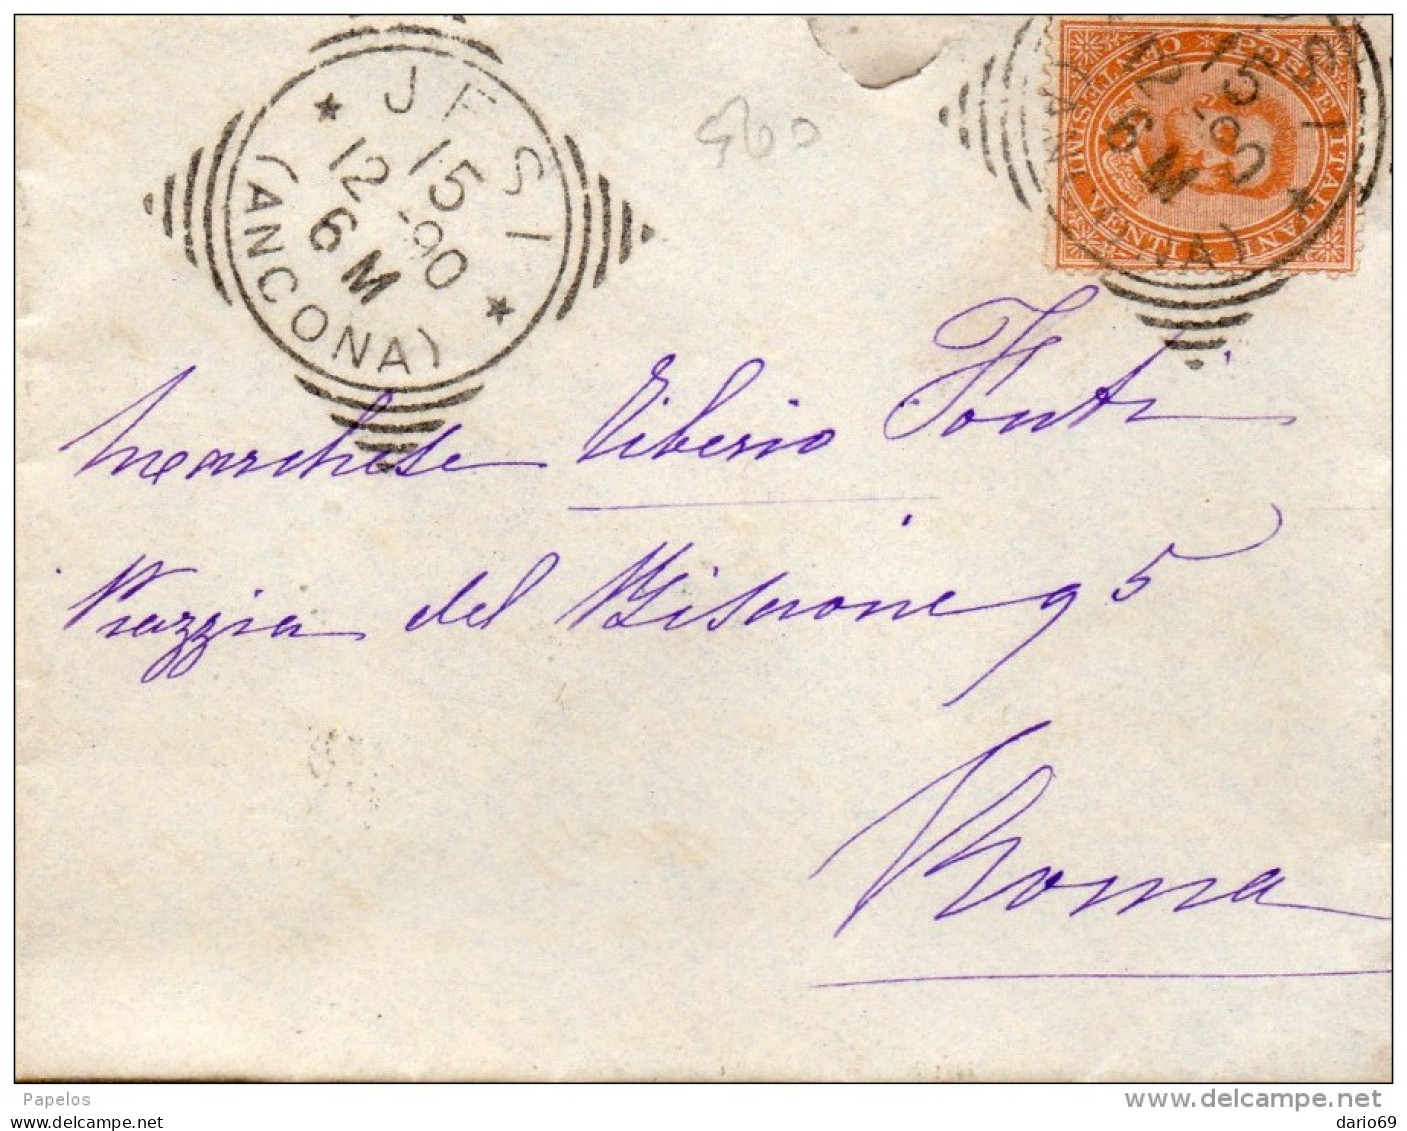 ★ JESI ★
15
12 - 90
6 M
(ANCONA)
560
POSTE ITALIANE
CENTESIMI VENTI
15
12 90
6 M
Marchese Tiberio Fonti
Piazza del Biscione 95
Roma
Papelos
www.delcampe.net
dario69